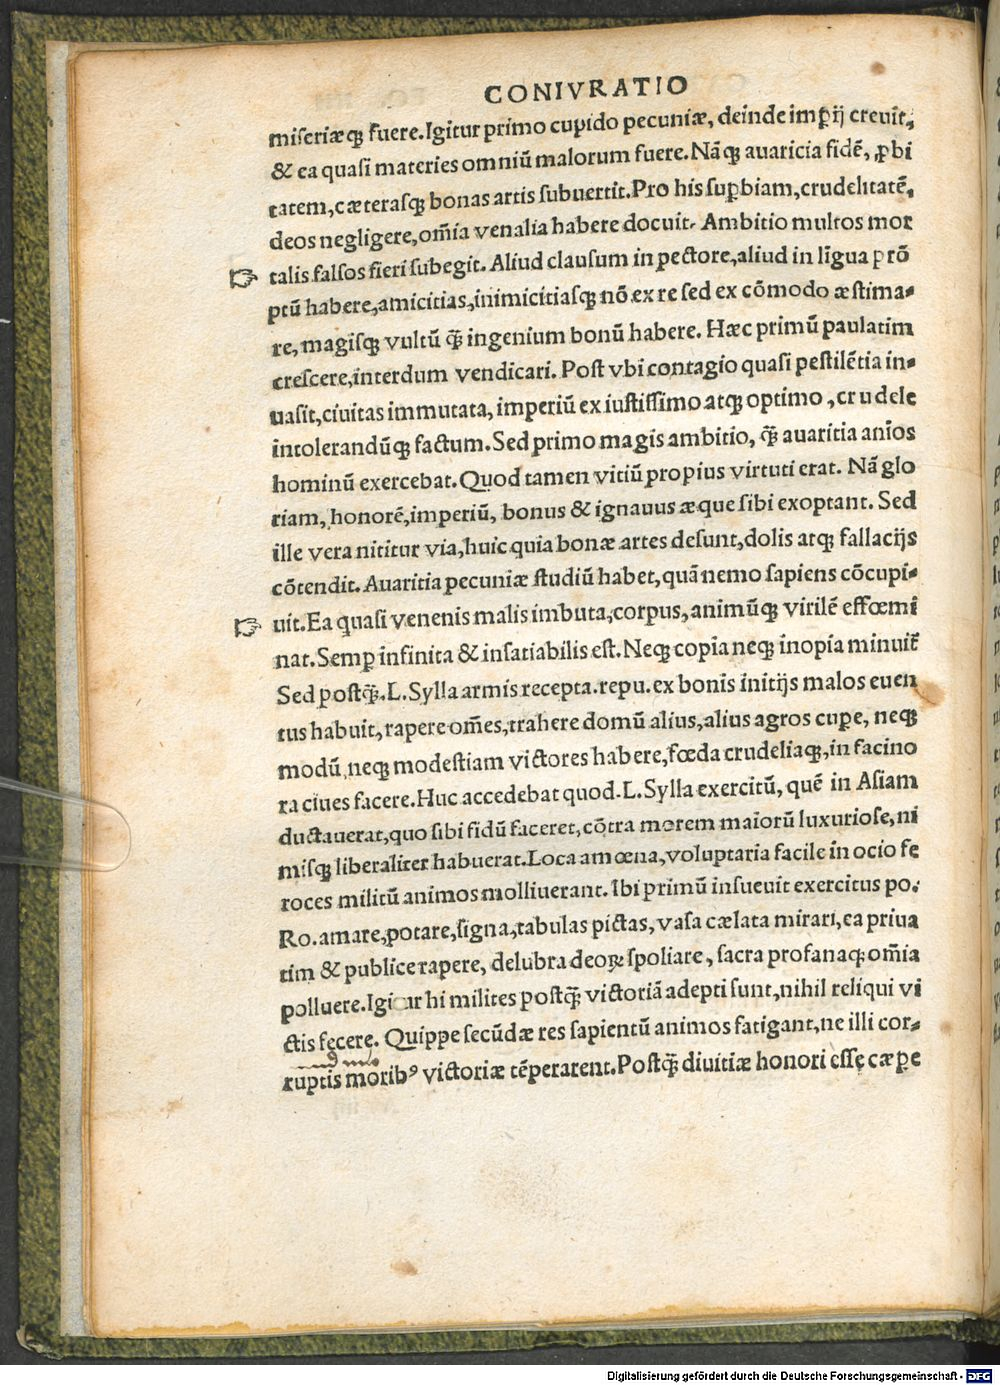 CONIVRATIO
miſeriæq́ꝫ fuere.Igitur primo cupido pecuniæ, deinde imꝑij creuit,
& ea quaſi materies omniũ malorum fuere.Nãq́ꝫ auaricia fidẽ, ꝓbi
tatem,cæteraſq́ꝫ bonas artis ſubuertit.Pro his ſuꝑbiam,crudelitatẽ,
deos negligere,om̃ia venalia habere docuit. Ambitio multos mor
☞ talis falſos fieri ſubegit. Aliud clauſum in pectore,aliud in lĩgua prõ
ptũ habere,amicitias,inimicitiaſq́ꝫ nõ ex re ſed ex cõmodo æſtima-
re,magiſq́ꝫ vultũ q̃ꝫ ingenium bonũ habere. Hæc primũ paulatim
creſcere,interdum vendicari. Poſt vbi contagio quaſi peſtilẽtia in-
uaſit,ciuitas immutata, imperiũ ex iuſtiſſimo atq́ꝫ optimo ,crudele
intolerandũq́ꝫ factum.Sed primo magis ambitio, q̃ꝫ auaritia anĩos
hominũ exercebat.Quod tamen vitiũ propius virtuti erat. Nã glo
riam, honorẽ,imperiũ, bonus & ignauus æque ſibi exoptant. Sed
ille vera nititur via,huic quia bonæ artes deſunt,dolis atq́ꝫ fallacijs
cõtendit.Auaritia pecuniæ ſtudiũ habet,quã nemo ſapiens cõcupi-
☞ uit.Ea quaſi venenis malis imbuta,corpus,animũq́ꝫ virilẽ effœmi
nat.Semꝑ infinita & inſatiabilis eſt.Neq́ꝫ copia neq́ꝫ inopia minuit᷑
Sed poſtq̃ꝫ.L.Sylla armis recepta.repu.ex bonis initijs malos euen
tus habuit,rapere om̃es,trahere domũ alius,alius agros cuꝑe, neq́ꝫ
modũ neq́ꝫ modeſtiam victores habere,fœda crudeliaq́ꝫ,in facino
ra ciues facere.Huc accedebat quod.L.Sylla exercitũ, quẽ in Aſiam
ductauerat,quo ſibi fidũ faceret,cõtra morem maiorũ luxurioſe,ni
miſq́ꝫ liberaliter habuerat.Loca amœna,voluptaria facile in ocio fe
roces militũ animos molliuerant. Ibi primũ inſueuit exercitus po.
Ro.amare,potare,ſigna,tabulas pictas, vaſa cælata mirari,ea priua
tim & publice rapere, delubra deoꝝ ſpoliare, ſacra profanaq́ꝫ om̃ia
polluere.Igitur hi milites poſtq̃ꝫ victoriã adepti ſunt,nihil reliqui vi
ctis fecere. Quippe ſecũdæ res ſapientũ animos fatigant,ne illi cor-
ruptis moribꝰ victoriæ tẽperarent.Poſtq̃ꝫ diuitiæ honori eſſe cæꝑe
Digitalisierung gefördert durch die Deutsche Forschungsgemeinschaft - DFG